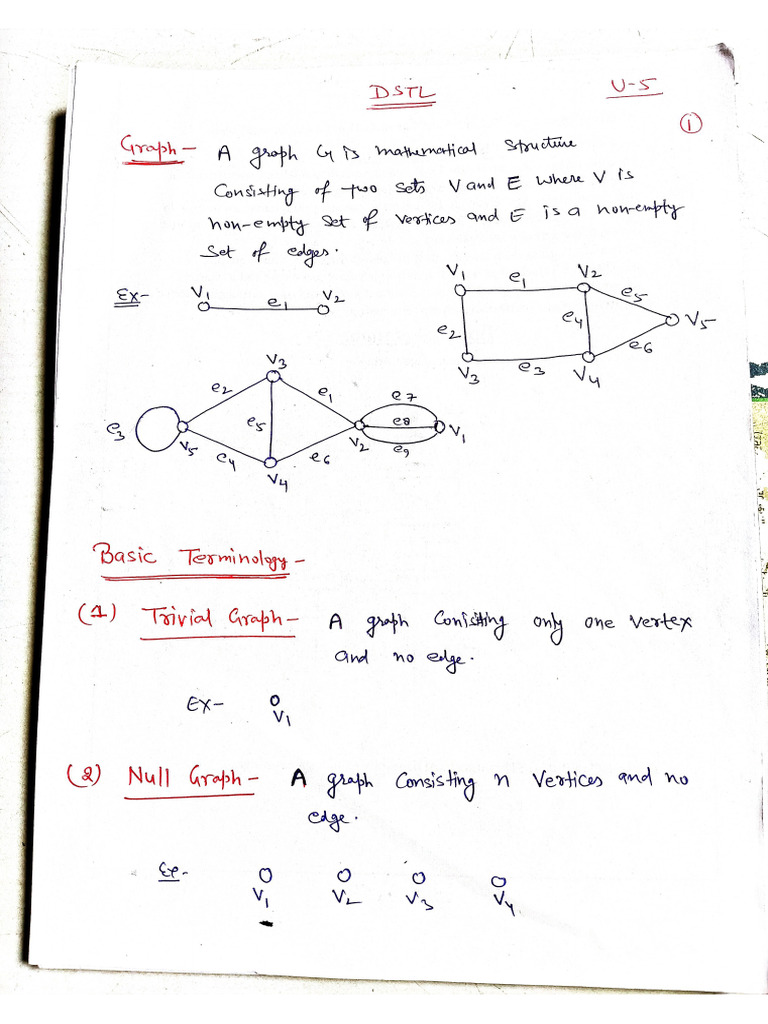 DSTL U-5
1
Graph - A graph G is mathematical structure
Consisting of two sets V and E where V is
non-empty set of vertices and E is a non-empty
Set of edges.
Ex- V1 e1 V2
V1 e1 V2
e2 e4 e5 V5
V3 e3 V4 e6
V3
e2 e1 e7
e3 V5 e5 V2 e8 V1
e4 e6 e9
V4
Basic Terminology -
(1) Trivial Graph - A graph Conisiting only one vertex
and no edge.
EX- V1
(2) Null Graph - A graph Consisting n Vertices and no
edge.
Ex- V1 V2 V3 V4